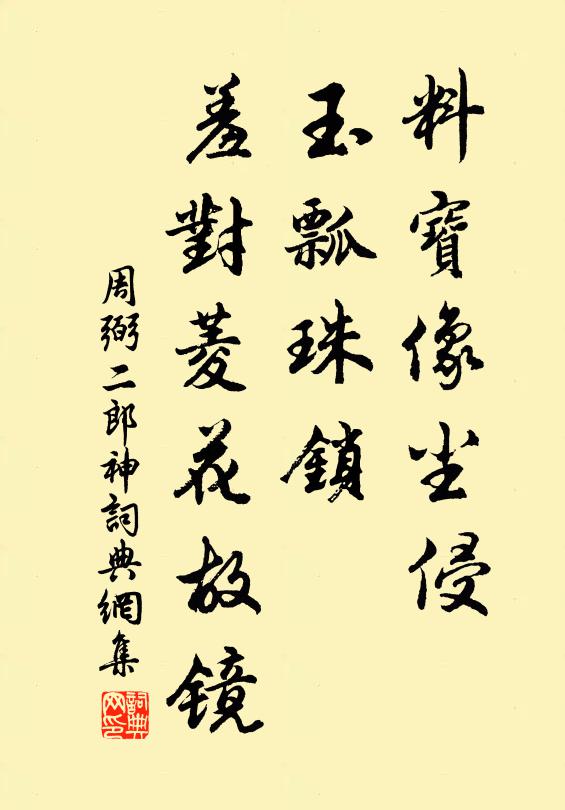 料寶像尘侵
玉瓢珠鎖
羞對菱花故鏡
周弼二郎神詞典網集
詞典网印